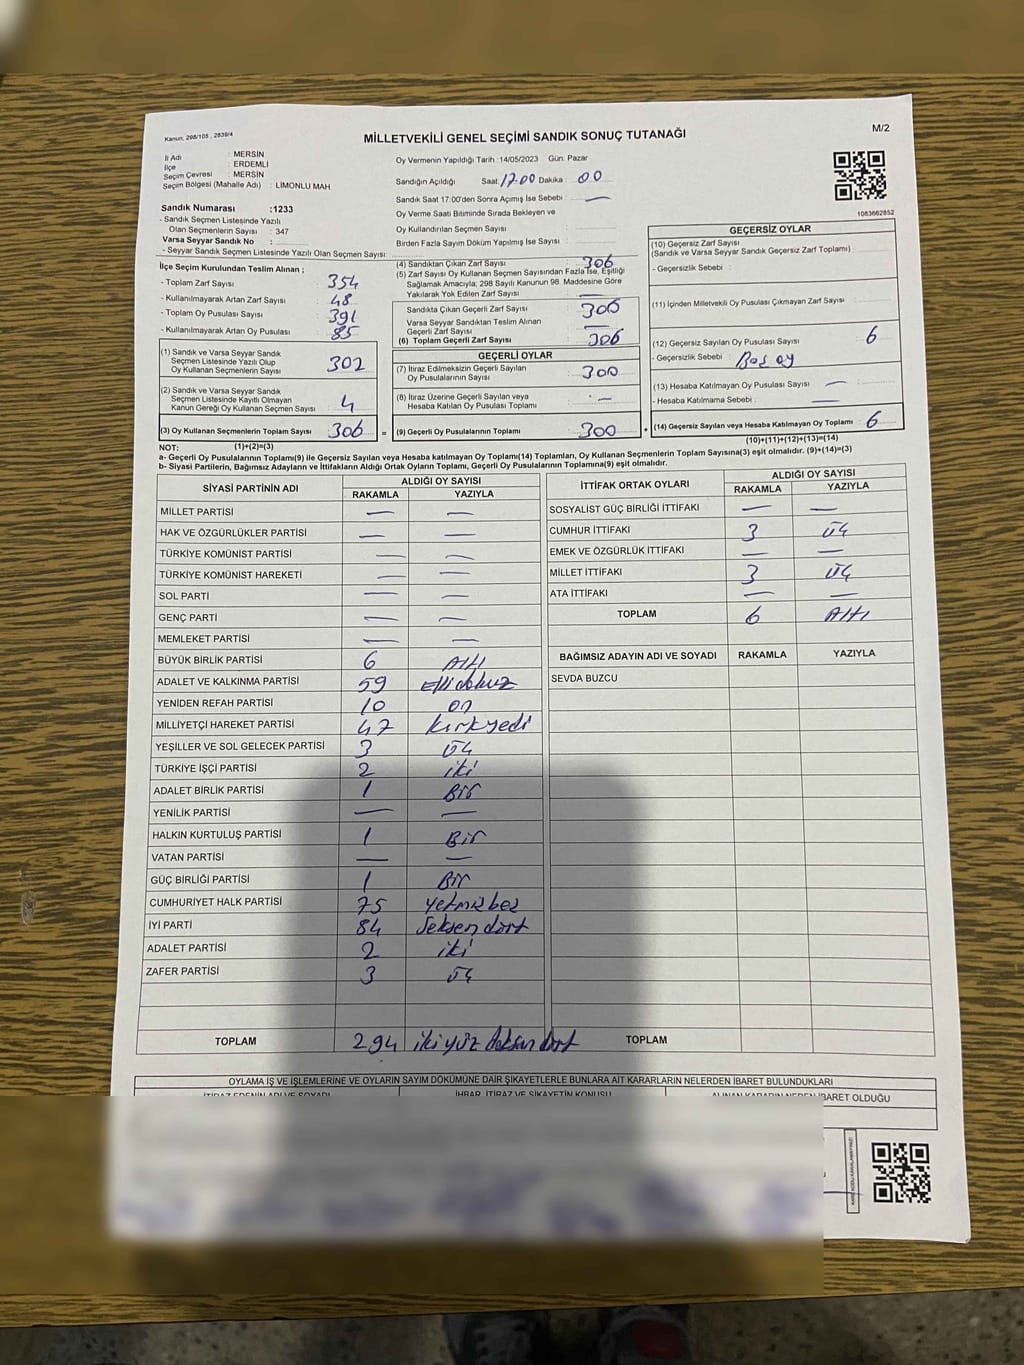 Kanun: 298/105 , 2839/4
MİLLETVEKİLİ GENEL SEÇİMİ SANDIK SONUÇ TUTANAĞI
M/2
İl Adı : MERSİN
İlçe : ERDEMLİ
Seçim Çevresi : MERSİN
Seçim Bölgesi (Mahalle Adı) : LİMONLU MAH.
Oy Vermenin Yapıldığı Tarih : 14/05/2023 Gün: Pazar
Sandığın Açıldığı Saat: 17.00 Dakika : 00
Sandık Saat 17.00'den Sonra Açımış İse Sebebi : —
Oy Verme Saati Bitiminde Sırada Bekleyen ve
Oy Kullandırılan Seçmen Sayısı :
Birden Fazla Sayım Döküm Yapılmış İse Sayısı :
1083662852
Sandık Numarası : 1233
- Sandık Seçmen Listesinde Yazılı
Olan Seçmenlerin Sayısı : 347
Varsa Seyyar Sandık No :
- Seyyar Sandık Seçmen Listesinde Yazılı Olan Seçmen Sayısı:
İlçe Seçim Kurulundan Teslim Alınan ;
- Toplam Zarf Sayısı : 354
- Kullanılmayarak Artan Zarf Sayısı : 48
- Toplam Oy Pusulası Sayısı : 391
- Kullanılmayarak Artan Oy Pusulası : 85
(1) Sandık ve Varsa Seyyar Sandık
Seçmen Listesinde Yazılı Olup
Oy Kullanan Seçmenlerin Sayısı : 302
(2) Sandık ve Varsa Seyyar Sandık
Seçmen Listesinde Kayıtlı Olmayan
Kanun Gereği Oy Kullanan Seçmen Sayısı : 4
(3) Oy Kullanan Seçmenlerin Toplam Sayısı : 306
(4) Sandıktan Çıkan Zarf Sayısı : 306
(5) Zarf Sayısı Oy Kullanan Seçmen Sayısından Fazla İse, Eşitliği
Sağlamak Amacıyla; 298 Sayılı Kanunun 98. Maddesine Göre
Yakılarak Yok Edilen Zarf Sayısı : —
Sandıkta Çıkan Geçerli Zarf Sayısı : 306
Varsa Seyyar Sandıktan Teslim Alınan
Geçerli Zarf Sayısı : —
(6) Toplam Geçerli Zarf Sayısı : 306
GEÇERLİ OYLAR
(7) İtiraz Edilmeksizin Geçerli Sayılan
Oy Pusulalarının Sayısı : 300
(8) İtiraz Üzerine Geçerli Sayılan veya
Hesaba Katılan Oy Pusulası Toplamı : —
= (9) Geçerli Oy Pusulalarının Toplamı : 300
GEÇERSİZ OYLAR
(10) Geçersiz Zarf Sayısı
(Sandık ve Varsa Seyyar Sandık Geçersiz Zarf Toplamı)
- Geçersizlik Sebebi :
(11) İçinden Milletvekili Oy Pusulası Çıkmayan Zarf Sayısı :
(12) Geçersiz Sayılan Oy Pusulası Sayısı : 6
- Geçersizlik Sebebi : Boş oy
(13) Hesaba Katılmayan Oy Pusulası Sayısı : —
- Hesaba Katılmama Sebebi : —
+ (14) Geçersiz Sayılan veya Hesaba Katılmayan Oy Toplamı : 6
NOT: (1)+(2)=(3)
(10)+(11)+(12)+(13)=(14)
a- Geçerli Oy Pusulaları Toplamı(9) ile Geçersiz Sayılan veya Hesaba katılmayan Oy Toplamı(14) Toplamları, Oy Kullanan Seçmenlerin Toplam Sayısına(3) eşit olmalıdır. (9)+(14)=(3)
b- Siyasi Partilerin, Bağımsız Adayların ve İttifakların Aldığı Ortak Oyların Toplamı, Geçerli Oy Pusulalarının Toplamına(9) eşit olmalıdır.
SİYASİ PARTİNİN ADI ALDIĞI OY SAYISI
RAKAMLA YAZIYLA
MİLLET PARTİSİ — —
HAK VE ÖZGÜRLÜKLER PARTİSİ — —
TÜRKİYE KOMÜNİST PARTİSİ — —
TÜRKİYE KOMÜNİST HAREKETİ — —
SOL PARTİ — —
GENÇ PARTİ — —
MEMLEKET PARTİSİ — —
BÜYÜK BİRLİK PARTİSİ 6 Altı
ADALET VE KALKINMA PARTİSİ 59 Ellidokuz
YENİDEN REFAH PARTİSİ 10 on
MİLLİYETÇİ HAREKET PARTİSİ 47 kırkyedi
YEŞİLLER VE SOL GELECEK PARTİSİ 3 üç
TÜRKİYE İŞÇİ PARTİSİ 2 iki
ADALET BİRLİK PARTİSİ 1 Bir
YENİLİK PARTİSİ — —
HALKIN KURTULUŞ PARTİSİ 1 Bir
VATAN PARTİSİ — —
GÜÇ BİRLİĞİ PARTİSİ 1 Bir
CUMHURİYET HALK PARTİSİ 75 yetmişbeş
İYİ PARTİ 84 Seksen dört
ADALET PARTİSİ 2 iki
ZAFER PARTİSİ 3 üç
TOPLAM 294 ikiyüz doksan dört
İTTİFAK ORTAK OYLARI ALDIĞI OY SAYISI
RAKAMLA YAZIYLA
SOSYALİST GÜÇ BİRLİĞİ İTTİFAKI — —
CUMHUR İTTİFAKI 3 üç
EMEK VE ÖZGÜRLÜK İTTİFAKI — —
MİLLET İTTİFAKI 3 üç
ATA İTTİFAKI — —
TOPLAM 6 Altı
BAĞIMSIZ ADAYIN ADI VE SOYADI RAKAMLA YAZIYLA
SEVDA BUZCU
TOPLAM
OYLAMA İŞ VE İŞLEMLERİNE VE OYLARIN SAYIM DÖKÜMÜNE DAİR ŞİKAYETLERLE BUNLARA AİT KARARLARIN NELERDEN İBARET BULUNDUKLARI
İTİRAZ EDENİN ADI VE SOYADI İHBAR, İTİRAZ VE ŞİKAYETİN KONUSU ALINAN KARARIN NEDEN İBARET OLDUĞU